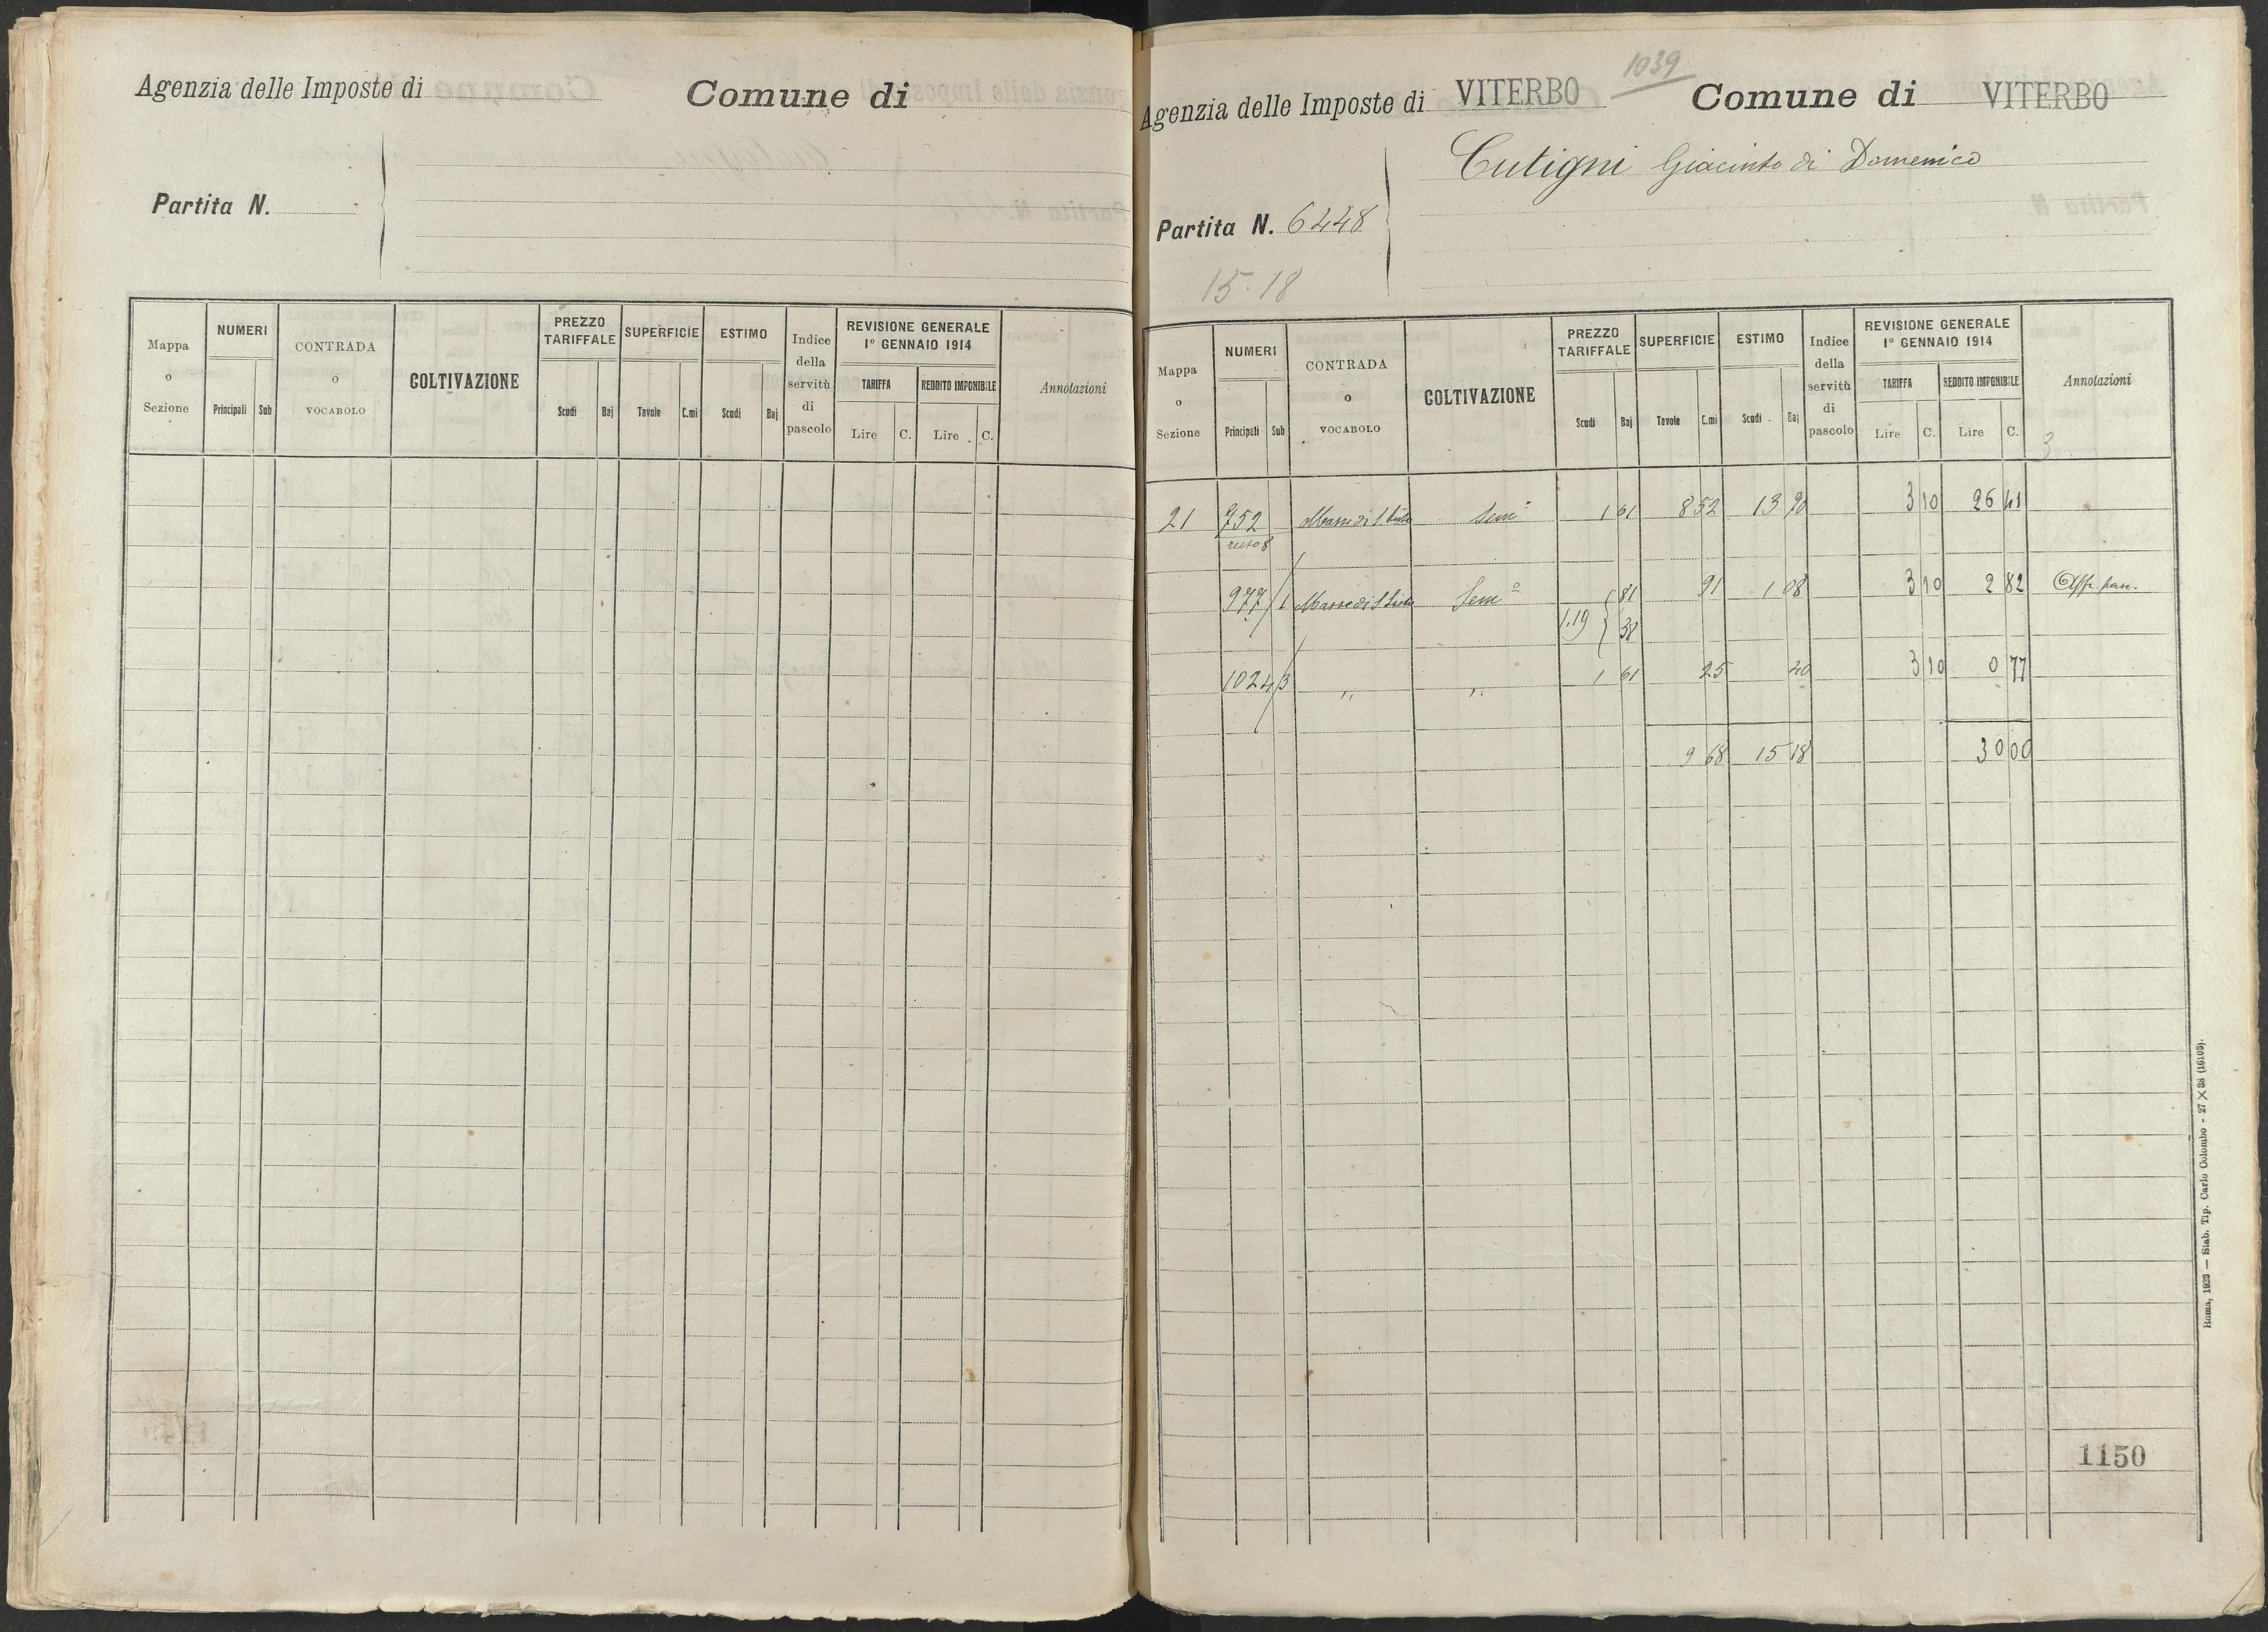 Agenzia delle Imposte di
Comune di
Partita N.
Mappa o Sezione
NUMERI
Principali Sub
CONTRADA o VOCABOLO
COLTIVAZIONE
PREZZO TARIFFALE
Scudi Baj
SUPERFICIE
Tavole C.mi
ESTIMO
Scudi Baj
Indice della servitù di pascolo
REVISIONE GENERALE
1° GENNAIO 1914
TARIFFA REDDITO IMPONIBILE
Lire C. Lire C.
Annotazioni
1039
Agenzia delle Imposte di VITERBO
Comune di VITERBO
Cutigni Giacinto di Domenico
Partita N. 6448
15.18
Mappa o Sezione
NUMERI
Principali Sub
CONTRADA o VOCABOLO
COLTIVAZIONE
PREZZO TARIFFALE
Scudi Baj
SUPERFICIE
Tavole C.mi
ESTIMO
Scudi Baj
Indice della servitù di pascolo
REVISIONE GENERALE
1° GENNAIO 1914
TARIFFA REDDITO IMPONIBILE
Lire C. Lire C.
Annotazioni
3
21 752 Masse di S Sisto Sem° 1 61 8 52 13 70 3 10 26 41
resto 8
977/1 Masse di S Sisto Sem° 81 91 1 08 3 10 2 82 Affr. pas.
1.19 } 38
1024/3 " " 1 61 25 40 3 10 0 77
9 68 15 18 30 00
1150
Roma, 1923 — Stab. Tip. Carlo Colombo - 27 X 38 (16109).